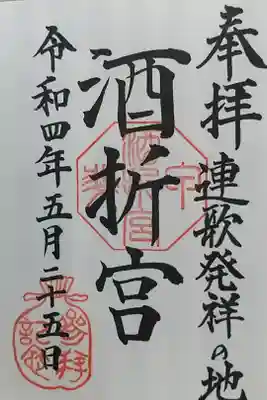 奉拝 連歌発祥の地
酒折宮
令和四年五月二十五日